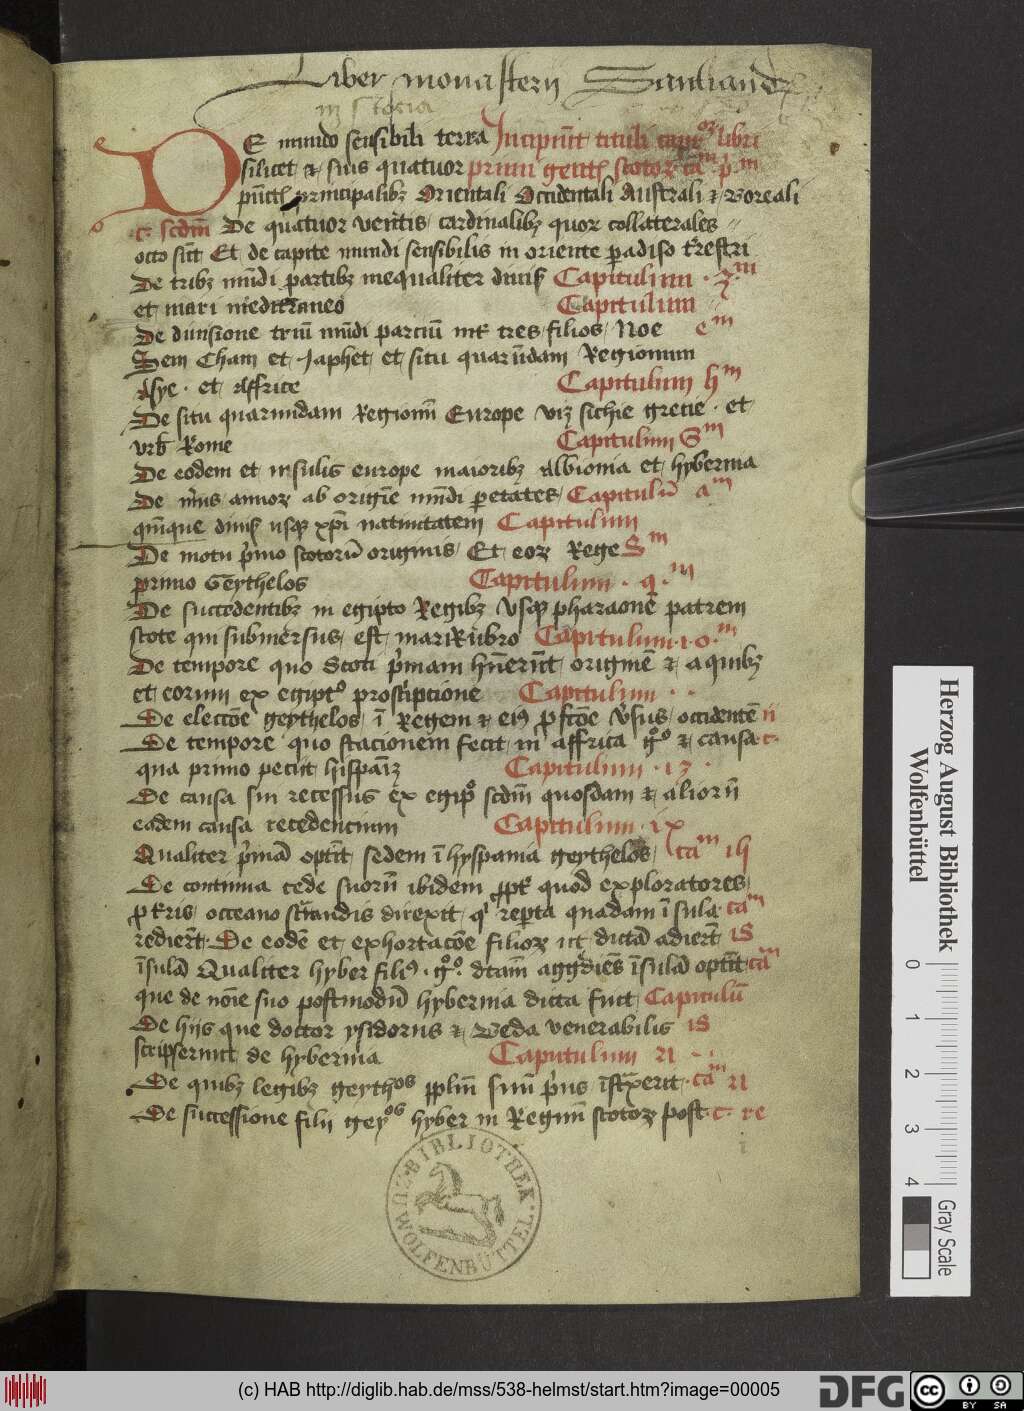 Liber monasterij Sanctiandree
in Scocia
DE mundo sensibili terra Incipiunt tituli capitulorum libri
silicet et suis quatuor primi gentis scotorum cam pm
punctis principalibus Orientali Occidentali Australi et Boreali
cm scdm De quatuor ventis cardinalibus quorum collaterales
octo sunt Et de capite mundi sensibilis in oriente paradiso terrestri
De tribus mundi partibus inequaliter divisis Capitulum 3m
et mari mediterraneo Capitulum
De divisione trium mundi parcium inter tres filios Noe em
Sem Cham et Japhet et situ quarundam Regionum
Asye et Affrice Capitulum hm
De situ quarumdam Regionum Europe viz sichie grecie et
urbis Rome Capitulum Sm
De eodem et insulis europe maioribus Albionia et hybernia
De annorum ab origine mundi per etates Capitulum am
quinque divisis usque xpi nativitatem Capitulum
De motu primo scotorum originis Et eorum Rege Sm
primo Geythelos Capitulum 9m
De succedentibus in egipto Regibus usque pharaonem patrem
scote qui submersus est mari Rubro Capitulum 10m
De tempore quo Scoti primam habuerunt originem et a quibus
et eorum ex egipto proscripcione Capitulum
De eleccione geythelos in Regem et eius profeccione versus occidentem ii
De tempore quo stacionem fecit in affrica geythelos et causa c
qua primo peciit hispaniam Capitulum 12
De causa sui recessus ex egipto secundum quosdam et aliorum
eadem causa recedencium Capitulum ix
Qualiter primam optinuit sedem in hyspania geythelos cam
De continua cede suorum ibidem propter quod exploratores
pro terris occeano scrutandis direxit qui reperta quadam insula cam
redierunt De eodem et exhortacione filiorum ut dictam adierent is
insulam Qualiter hyber filius geythelos dictam aggrediens insulam optinuit cam
que de nomine suo postmodum hybernia dicta fuit Capitulum
De hijs que doctor ysidorus et Beda venerabilis is
scripserunt de hybernia Capitulum xi
De quibus legibus geythelos populum suum prius instruxerit cam xi
De successione filii geythelos hyber in Regnum scotorum post c re
BIBLIOTHEK.
ZU WOLFENBÜTTEL.
Herzog August Bibliothek
Wolfenbüttel
0 1 2 3 4
Gray Scale
(c) HAB http://diglib.hab.de/mss/538-helmst/start.htm?image=00005
DFG
cc BY SA